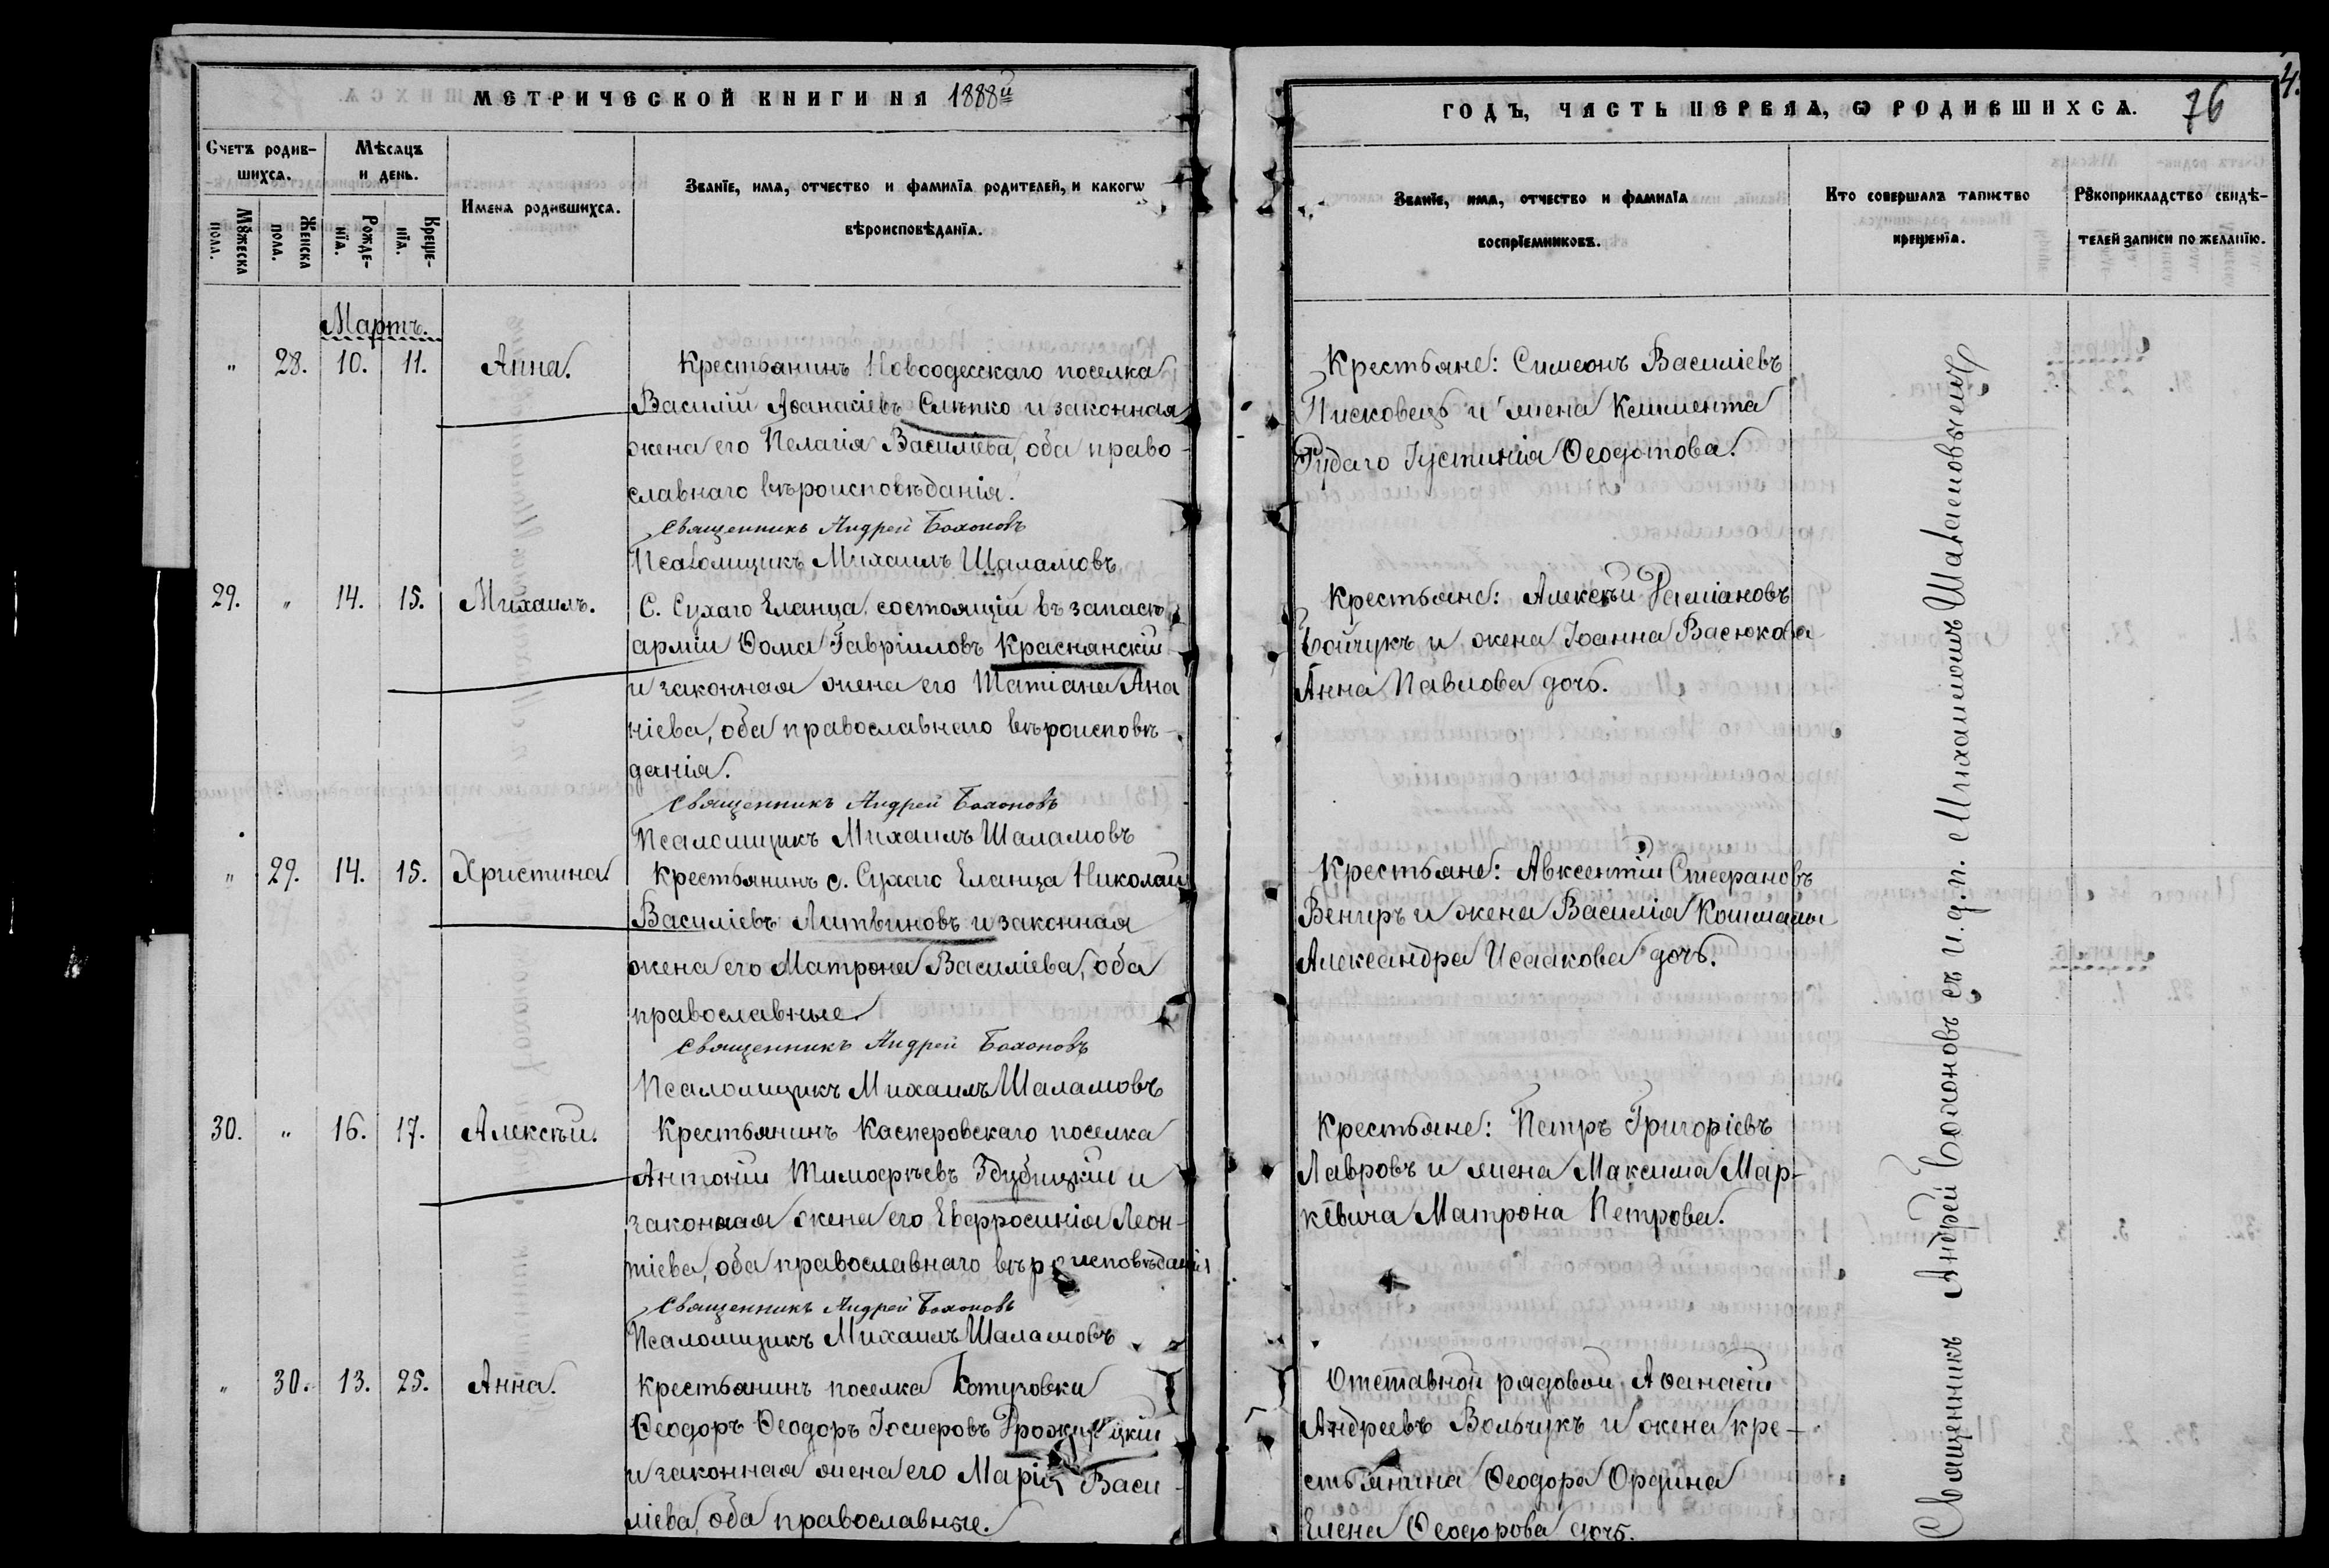 МЕТРИЧЕСКОЙ КНИГИ НА 1888й
Счетъ родив-
шихсѧ.
Мѣсѧцъ
и день.
Мꙋжеска
пола.
Женска
пола.
Рожде-
нїѧ.
Креще-
нїѧ.
Имена родившихсѧ.
Званїе, имѧ, отчество и фамилїѧ родителей, и какогѡ
вѣроисповѣданїѧ.
Мартъ.
" 28. 10. 11. Анна.
Крестьянинъ Новоодесскаго поселка
Василій Аѳанасіевъ Слѣпко и законная
жена его Пелагія Василіева, оба право-
славнаго вѣроисповѣданія.
Священникъ Андрей Бахоновъ
Псаломщикъ Михаилъ Шаламовъ
29. " 14. 15. Михаилъ.
С. Сухаго Еланца, состоящій въ запасѣ
арміи Ѳома Гавріиловъ Краснянскій
и законная жена его Татіана Ана
ніева, оба православнаго вѣроисповѣ-
данія.
Священникъ Андрей Бахоновъ
Псаломщикъ Михаилъ Шаламовъ
" 29. 14. 15. Христина.
Крестьянинъ с. Сухаго Еланца Николай
Василіевъ Литвиновъ и законная
жена его Матрона Василіева, оба
православные.
Священникъ Андрей Бахоновъ
Псаломщикъ Михаилъ Шаламовъ
30. " 16. 17. Алексѣй.
Крестьянинъ Касперовскаго поселка
Антоній Тимоѳѣевъ Збубицкій и
законная жена его Евфросинія Леон-
тіева, оба православнаго вѣроисповѣданія
Священникъ Андрей Бахоновъ
Псаломщикъ Михаилъ Шаламовъ
" 30. 13. 25. Анна.
Крестьянинъ поселка Котуговки
Ѳеодоръ Ѳеодоръ Іосифовъ
и законная жена его Марія Васи-
ліева, оба православные.
ГОДЪ, ЧАСТЬ ПЕРВАѦ, Ѡ РОДИВШИХСѦ. 76
Званїе, имѧ, отчество и фамилїѧ
воспрїемниковъ.
Кто совершалъ таинство
крещенїѧ.
Рꙋкоприкладство свидѣ-
телей записи по желанїю.
Крестьяне: Симеонъ Василіевъ
Писковецъ и жена Климента
Рудаго Іустинія Ѳеодотова.
Крестьяне: Алексѣй Даміановъ
Бойчукъ и жена Іоанна Васюкова
Анна Павлова дочь.
Крестьяне: Авксентій Стефановъ
Венгръ и жена Василія Кошмана
Александра Исаакова дочь.
Крестьяне: Петръ Григоріевъ
Лавровъ и жена Максима Мар-
кевича Матрона Петрова.
Отставной рядовой Аѳанасій
Андреевъ Вольчукъ и жена кре-
стьянина Ѳеодора Ордина
Елена Ѳеодорова дочь.
Священникъ Андрей Бахоновъ съ и. д. п. Михаиломъ Шаламовымъ